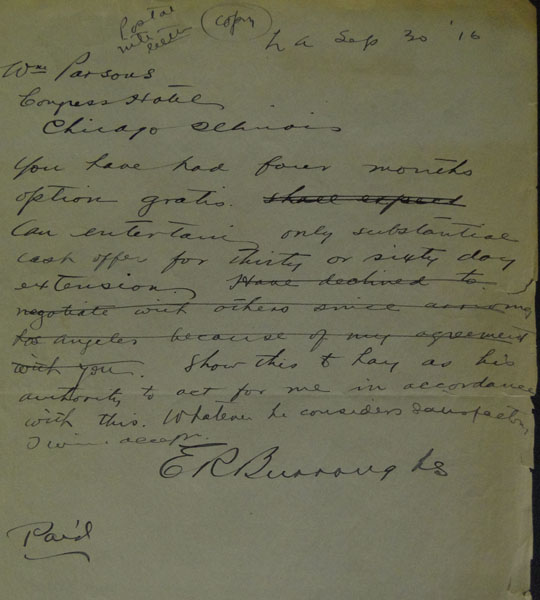 Postal
nite
letter
copy
L A Sep 30 '16
Wm Parsons
Congress Hotel
Chicago Illinois
You have had four months
option gratis. shall expect
Can entertain only substantial
cash offer for thirty or sixty day
extension. Have declined to
negotiate with others since arriving
Los Angeles because of my agreement
with you. Show this to Hay as his
authority to act for me in accordance
with this. Whatever he considers satisfactory
I will accept.
E R Burroughs
Paid